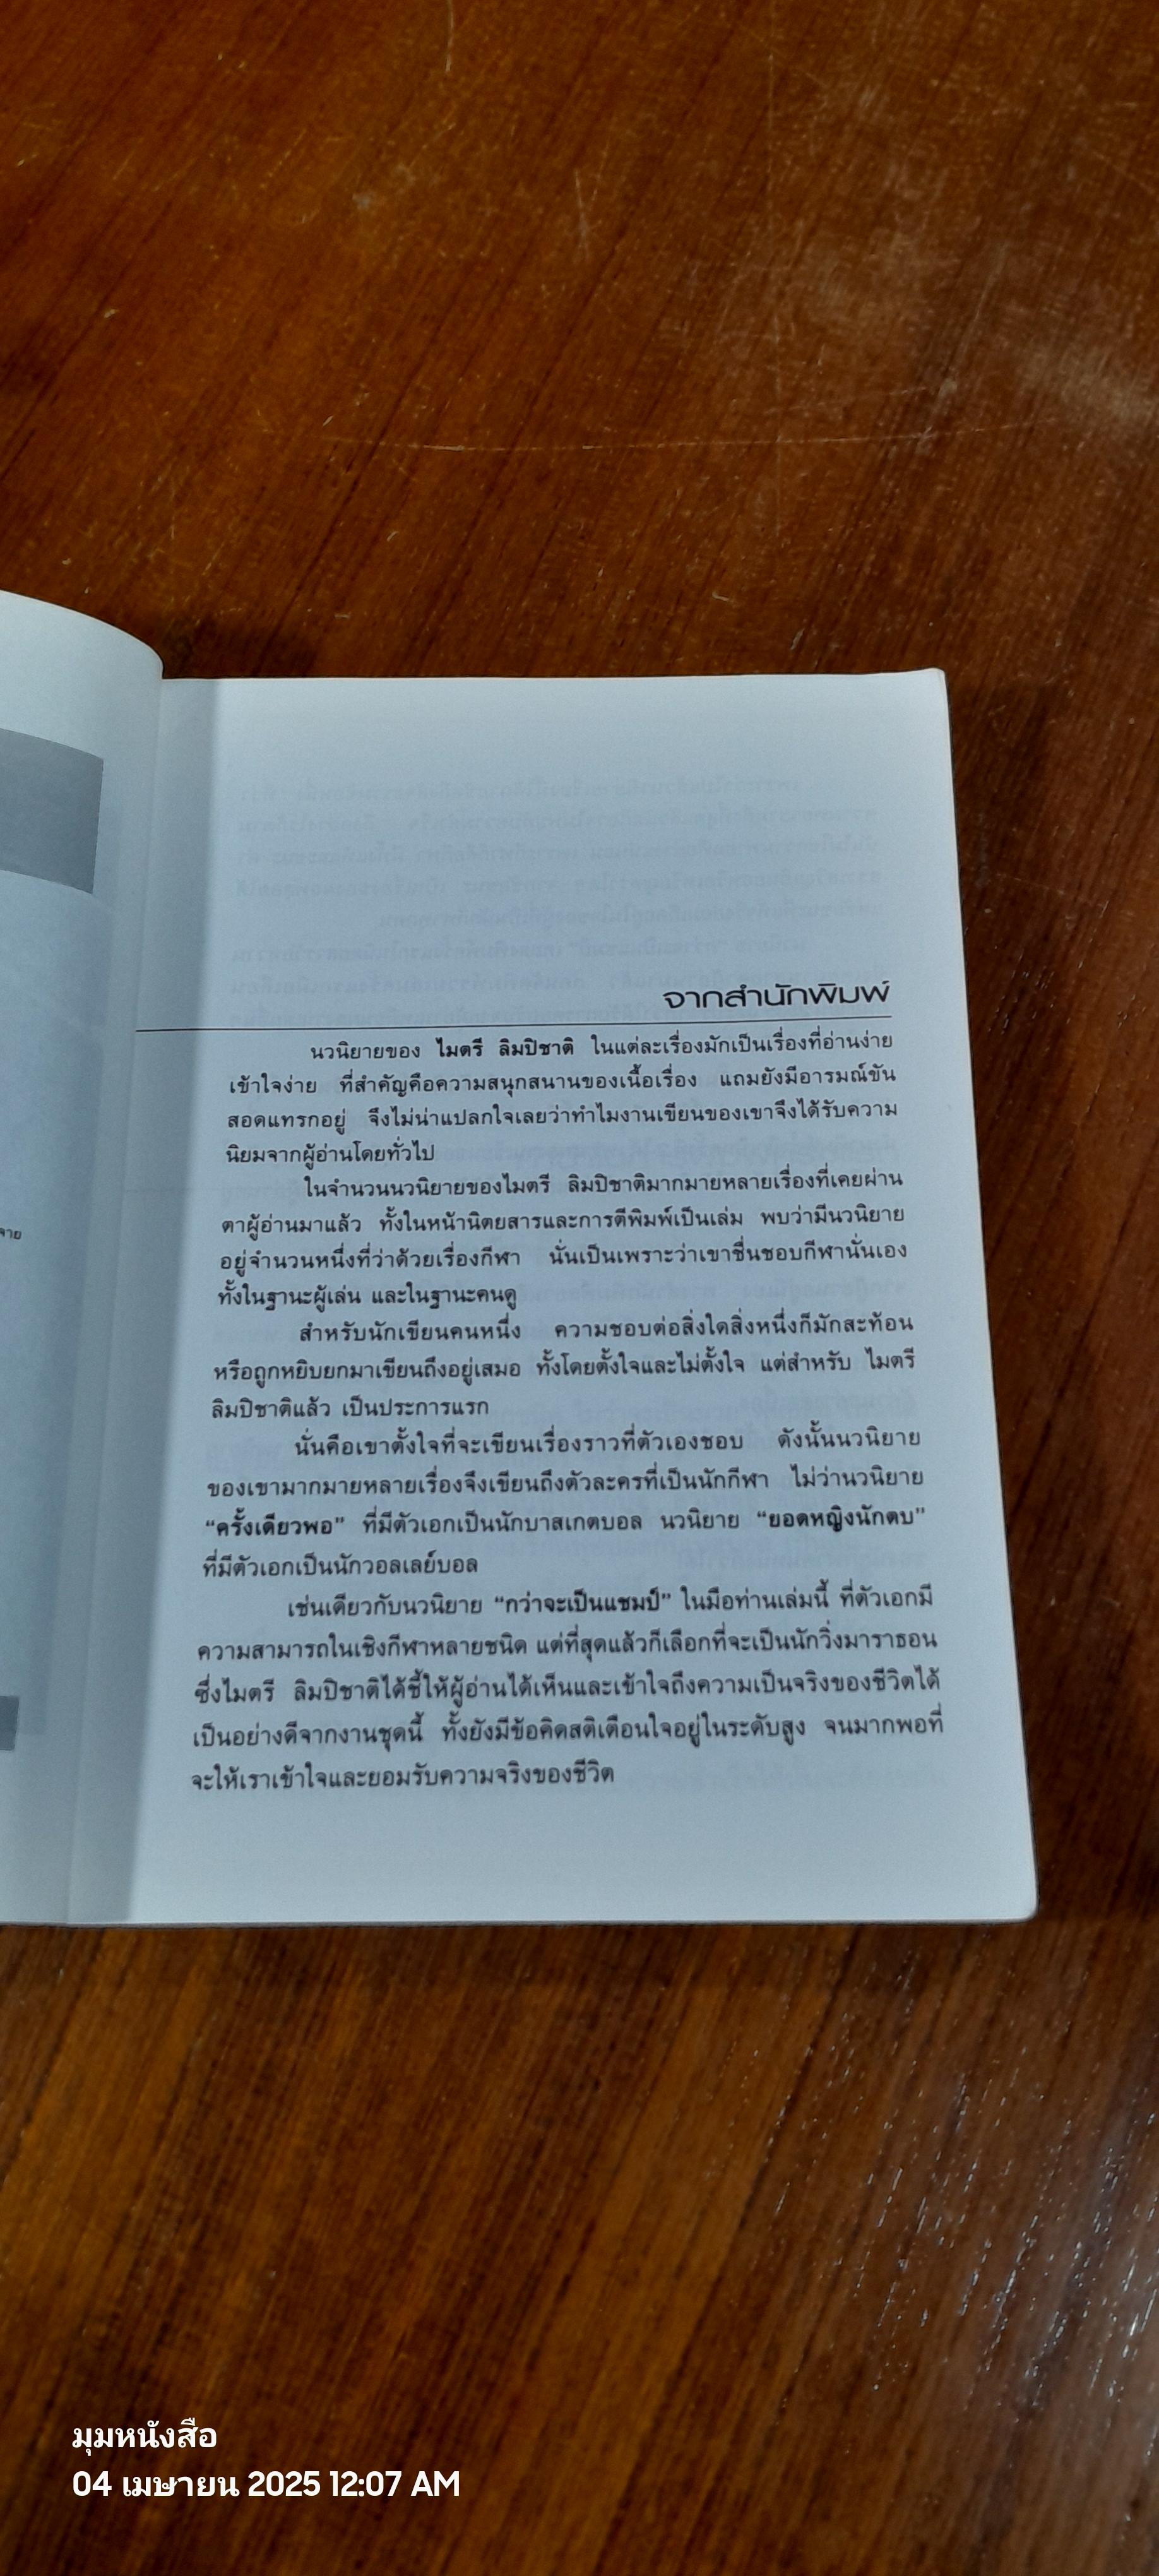 จากสำนักพิมพ์
นวนิยายของ ไมตรี ลิมปิชาติ ในแต่ละเรื่องมักเป็นเรื่องที่อ่านง่าย
เข้าใจง่าย ที่สำคัญคือความสนุกสนานของเนื้อเรื่อง แถมยังมีอารมณ์ขัน
สอดแทรกอยู่ จึงไม่น่าแปลกใจเลยว่าทำไมงานเขียนของเขาจึงได้รับความ
นิยมจากผู้อ่านโดยทั่วไป
ในจำนวนนวนิยายของไมตรี ลิมปิชาติมากมายหลายเรื่องที่เคยผ่าน
ตาผู้อ่านมาแล้ว ทั้งในหน้านิตยสารและการตีพิมพ์เป็นเล่ม พบว่ามีนวนิยาย
อยู่จำนวนหนึ่งที่ว่าด้วยเรื่องกีฬา นั่นเป็นเพราะว่าเขาชื่นชอบกีฬานั่นเอง
ทั้งในฐานะผู้เล่น และในฐานะคนดู
สำหรับนักเขียนคนหนึ่ง ความชอบต่อสิ่งใดสิ่งหนึ่งก็มักสะท้อน
หรือถูกหยิบยกมาเขียนถึงอยู่เสมอ ทั้งโดยตั้งใจและไม่ตั้งใจ แต่สำหรับ ไมตรี
ลิมปิชาติแล้ว เป็นประการแรก
นั่นคือเขาตั้งใจที่จะเขียนเรื่องราวที่ตัวเองชอบ ดังนั้นนวนิยาย
ของเขามากมายหลายเรื่องจึงเขียนถึงตัวละครที่เป็นนักกีฬา ไม่ว่านวนิยาย
“ครั้งเดียวพอ” ที่มีตัวเอกเป็นนักบาสเกตบอล นวนิยาย “ยอดหญิงนักตบ”
ที่มีตัวเอกเป็นนักวอลเลย์บอล
เช่นเดียวกับนวนิยาย “กว่าจะเป็นแชมป์” ในมือท่านเล่มนี้ ที่ตัวเอกมี
ความสามารถในเชิงกีฬาหลายชนิด แต่ที่สุดแล้วก็เลือกที่จะเป็นนักวิ่งมาราธอน
ซึ่งไมตรี ลิมปิชาติได้ชี้ให้ผู้อ่านได้เห็นและเข้าใจถึงความเป็นจริงของชีวิตได้
เป็นอย่างดีจากงานชุดนี้ ทั้งยังมีข้อคิดสติเตือนใจอยู่ในระดับสูง จนมากพอที่
จะให้เราเข้าใจและยอมรับความจริงของชีวิต
มุมหนังสือ
04 เมษายน 2025 12:07 AM